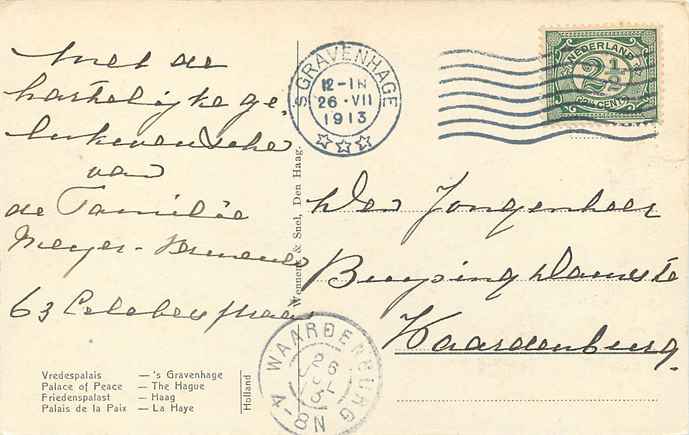 Met de
hartelijke ge
lukwensche
van
de Familie
Meyer-
63 Celebesstraat
Vredespalais — 's Gravenhage
Palace of Peace — The Hague
Friedenspalast — Haag
Palais de la Paix — La Haye
Holland
Wennenk & Snel, Den Haag.
'S GRAVENHAGE
12-1N
26·VII
1913
NEDERLAND
2½
CENT
Den Jongenheer
Waardenburg.
WAARDENBURG
26
4-8N